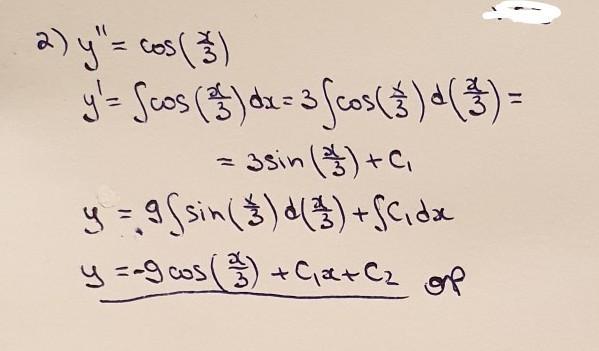 2) y'' = cos(x/3)
y' = ∫cos(x/3)dx = 3∫cos(x/3)d(x/3) =
= 3sin(x/3) + C₁
y = 9∫sin(x/3)d(x/3) + ∫C₁dx
y = -9cos(x/3) + C₁x + C₂